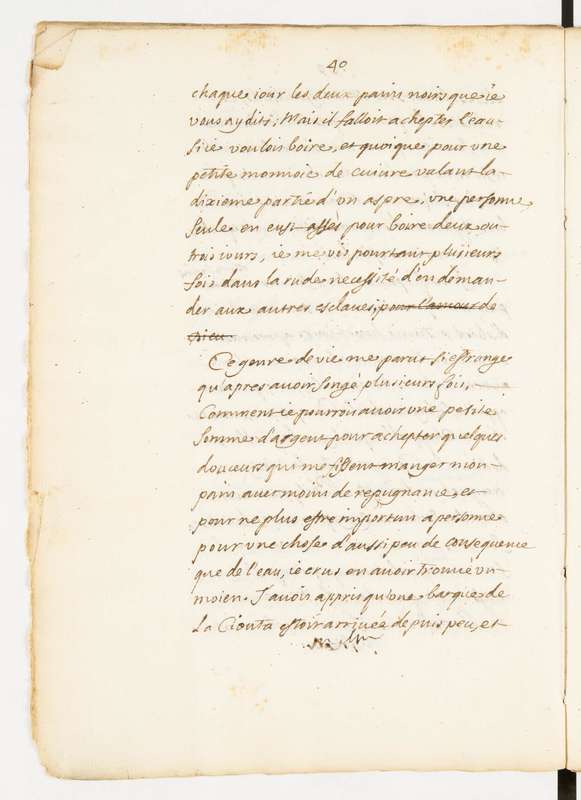 40
chaque iour les deux pains noirs que ie
vous ay dits; Mais il falloit achepter l'eau
si ie voulois boire, et quoique pour vne
petite monnoie de cuiure valant la
dixieme partie d'vn aspre, vne personne
seule en eust assès pour boire deux ou
trois iours, ie me vis pourtant plusieurs
fois dans la rude necessité d'en deman-
der aux autres esclaves, pour l'amour de
Dieu
Ce genre de vie me parut si estrange
qu'apres avoir songé plusieurs fois,
Comment ie pourrois avoir vne petite
somme d'argent pour achepter quelques
douceurs qui me fissent manger mon
pain avec moins de repugnance, et
pour ne plus estre importun a personne
pour vne chose d'aussi peu de consequence
que de l'eau, ie crus en avoir trouvé vn
moien. J'avois appris qu'vne barque de
La Ciouta estoit arrivée depuis peu, et